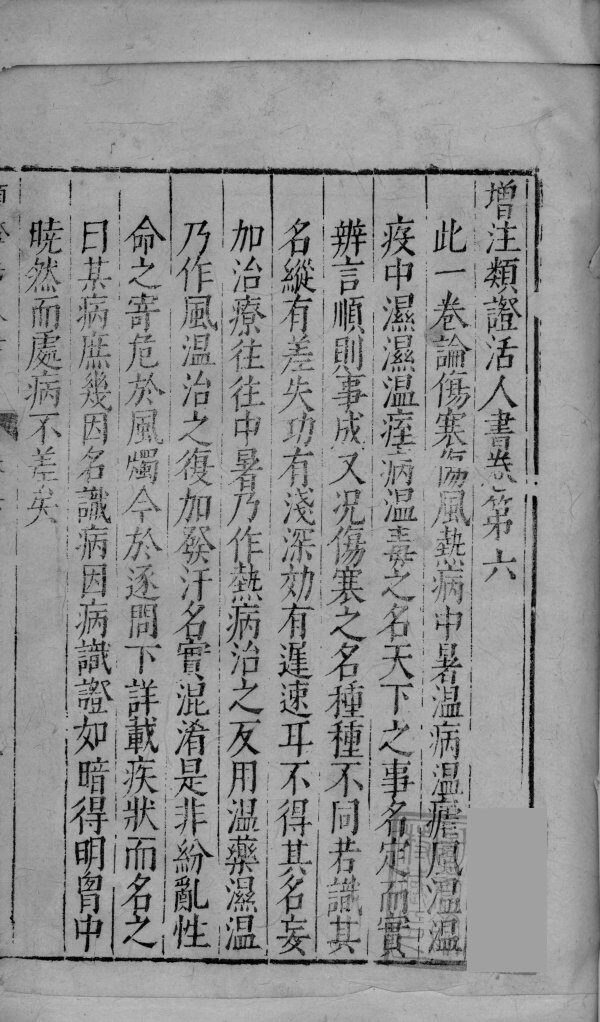 增注類證活人書卷第六
此一卷論傷寒傷風熱病中暑温病温瘧風温温
疫中濕濕温痓病温毒之名天下之事名定而實
辨言順則事成又况傷寒之名種種不同若識其
名縱有差失功有淺深効有遲速耳不得其名妄
加治療往往中暑乃作熱病治之反用温藥濕温
乃作風温治之復加發汗名實混淆是非紛亂性
命之寄危於風燭今於逐問下詳載疾狀而名之
曰某病庶幾因名識病因病識證如暗得明胷中
曉然而處病不差矣